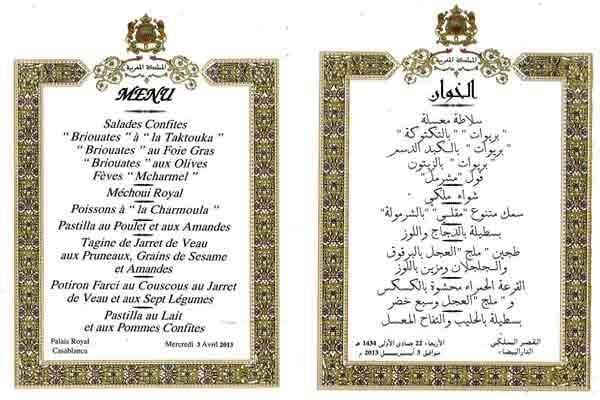 المملكة المغربية
MENU
Salades Confites
" Briouates " à " la Taktouka "
" Briouates " au Foie Gras
" Briouates " aux Olives
Fèves " Mcharmel "
Méchoui Royal
Poissons à " la Charmoula "
Pastilla au Poulet et aux Amandes
Tagine de Jarret de Veau
aux Pruneaux, Grains de Sesame
et Amandes
Potiron Farci au Couscous au Jarret
de Veau et aux Sept Légumes
Pastilla au Lait
et aux Pommes Confites
Palais Royal
Casablanca
Mercredi 3 Avril 2013
المملكة المغربية
الخوان
سلاطة معسلة
" بريوات " " بالتكتوكة "
" بريوات " بالكبد الدسم
" بريوات " بالزيتون
فول " مشرمل "
شواء ملكي
سمك متنوع "مقلي" "بالشرمولة"
بسطيلة بالدجاج واللوز
طجين " ملج " العجل بالبرقوق
والجلجلان ومزين باللوز
القرعة الحمراء محشوة بالكسكس
و " ملج " العجل وسبع خضر
بسطيلة بالحليب والتفاح المعسل
القصر الملكي
الدار البيضاء
الأربعاء 22 جمادى الأولى 1434 هـ
موافق 3 أبريل 2013 م